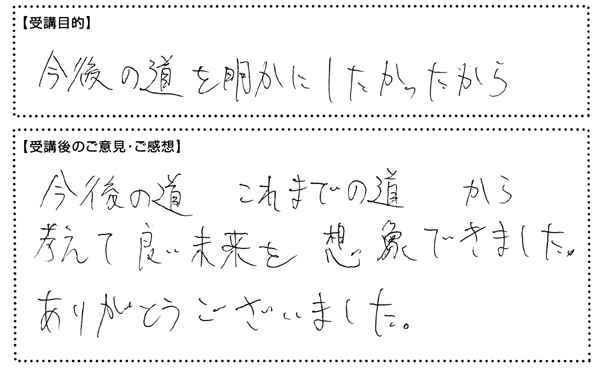 【受講目的】
今後の道を明かにしたかったから
【受講後のご意見・ご感想】
今後の道 これまでの道 から
考えて良い未来を 想象できました。
ありがとうございました。